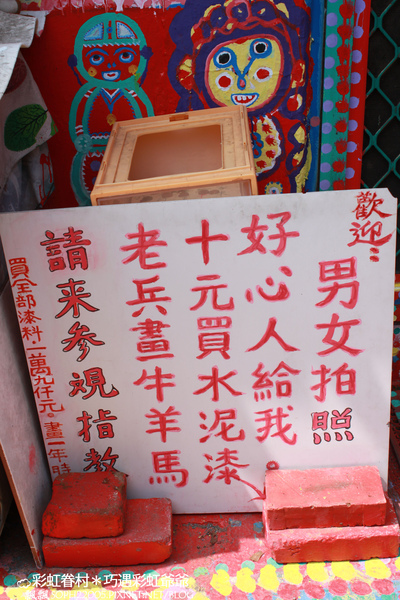 歡迎：
男女拍照
好心人給我
十元買水泥漆
老兵畫牛羊馬
請来参观指教
買全部漆料.一萬九仟元。畫一年時
彩虹眷村＊巧遇彩虹爺爺